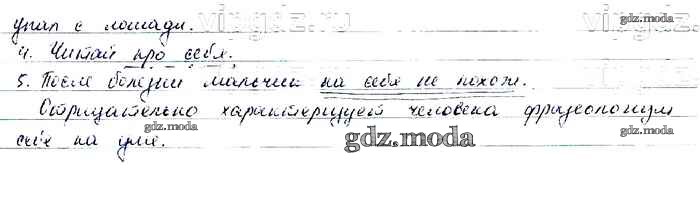 vipgdz.ru
упал с лошади. gdz.moda
4. Читай про себя.
gdz.moda
5. После болезни мальчик на себя не похож.
Отрицательно характеризует человека фразеологизм
себе на уме. gdz.moda gdz.moda gdz.moda